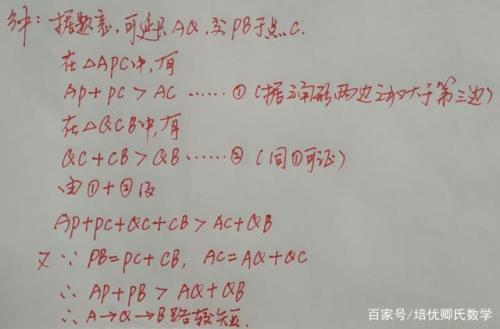 解:据题意,可延长AQ,交PB于点C.
在△APC中,有
AP+PC>AC ……① (据三角形两边之和大于第三边)
在△QCB中,有
QC+CB>QB ……② (同①可证)
由①+②得
AP+PC+QC+CB>AC+QB
又∵ PB=PC+CB, AC=AQ+QC
∴ AP+PB > AQ+QB
∴ A→Q→B路较短.
百家号/培优卿氏数学